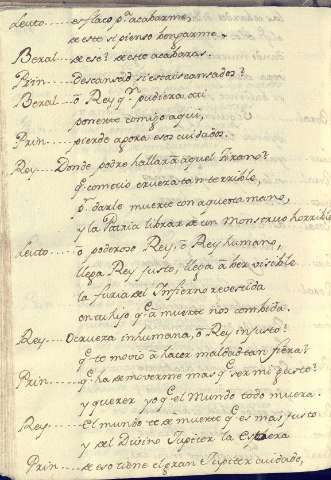 Leuto.....es flaco pª acabarme,
de este si pienso bengarme.
Beral.....de ese? de este acabaras.
Prin.....Descansad si estais cansados?
Beral.....ô Rey qn pudiera oÿ
ponerte comigo aqui,
Prin.....pierde agora esos cuidados.
Rey.....Donde podre hallar a aquel tirano?
qe. cometio crueza tan terrible,
pª darle muerte con aquesta mano,
y la Patria librar de un Monstruo horrible
Leuto.....o poderoso Rey, ô Rey humano,
llega Rey justo, llega â ber visible
la furia del Infierno revestida
en tu hijo qe â muerte nos combida.
Rey.....O cruera inhumana, ô Rey injusto?
qe te movio â hacer maldad tan fiera?
Prin.....qe ha de moverme mas qe ver mi gusto?
y querer yo qe el Mundo todo muera.
Rey.....El mundo te dê muerte qe es mas justo
y del Divino Jupiter la Esfera
Prin.....de eso tiene el gran Jupiter cuidado,